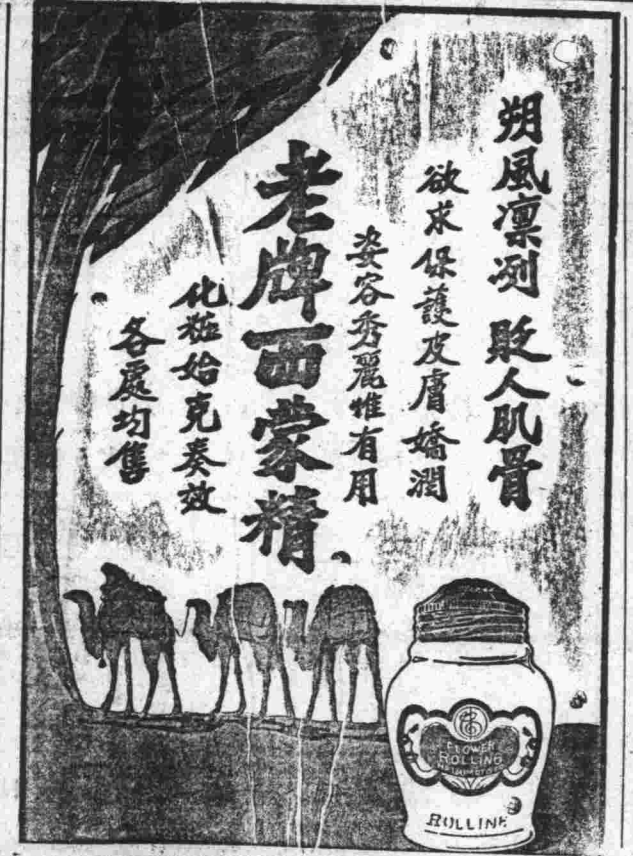 朔風凛冽 貶人肌骨
欲求保護皮膚嬌潤
姿容秀麗惟有用
老牌西蒙精
化粧始克奏效
各處均售
FLOWER
ROLLING
ROLLINE